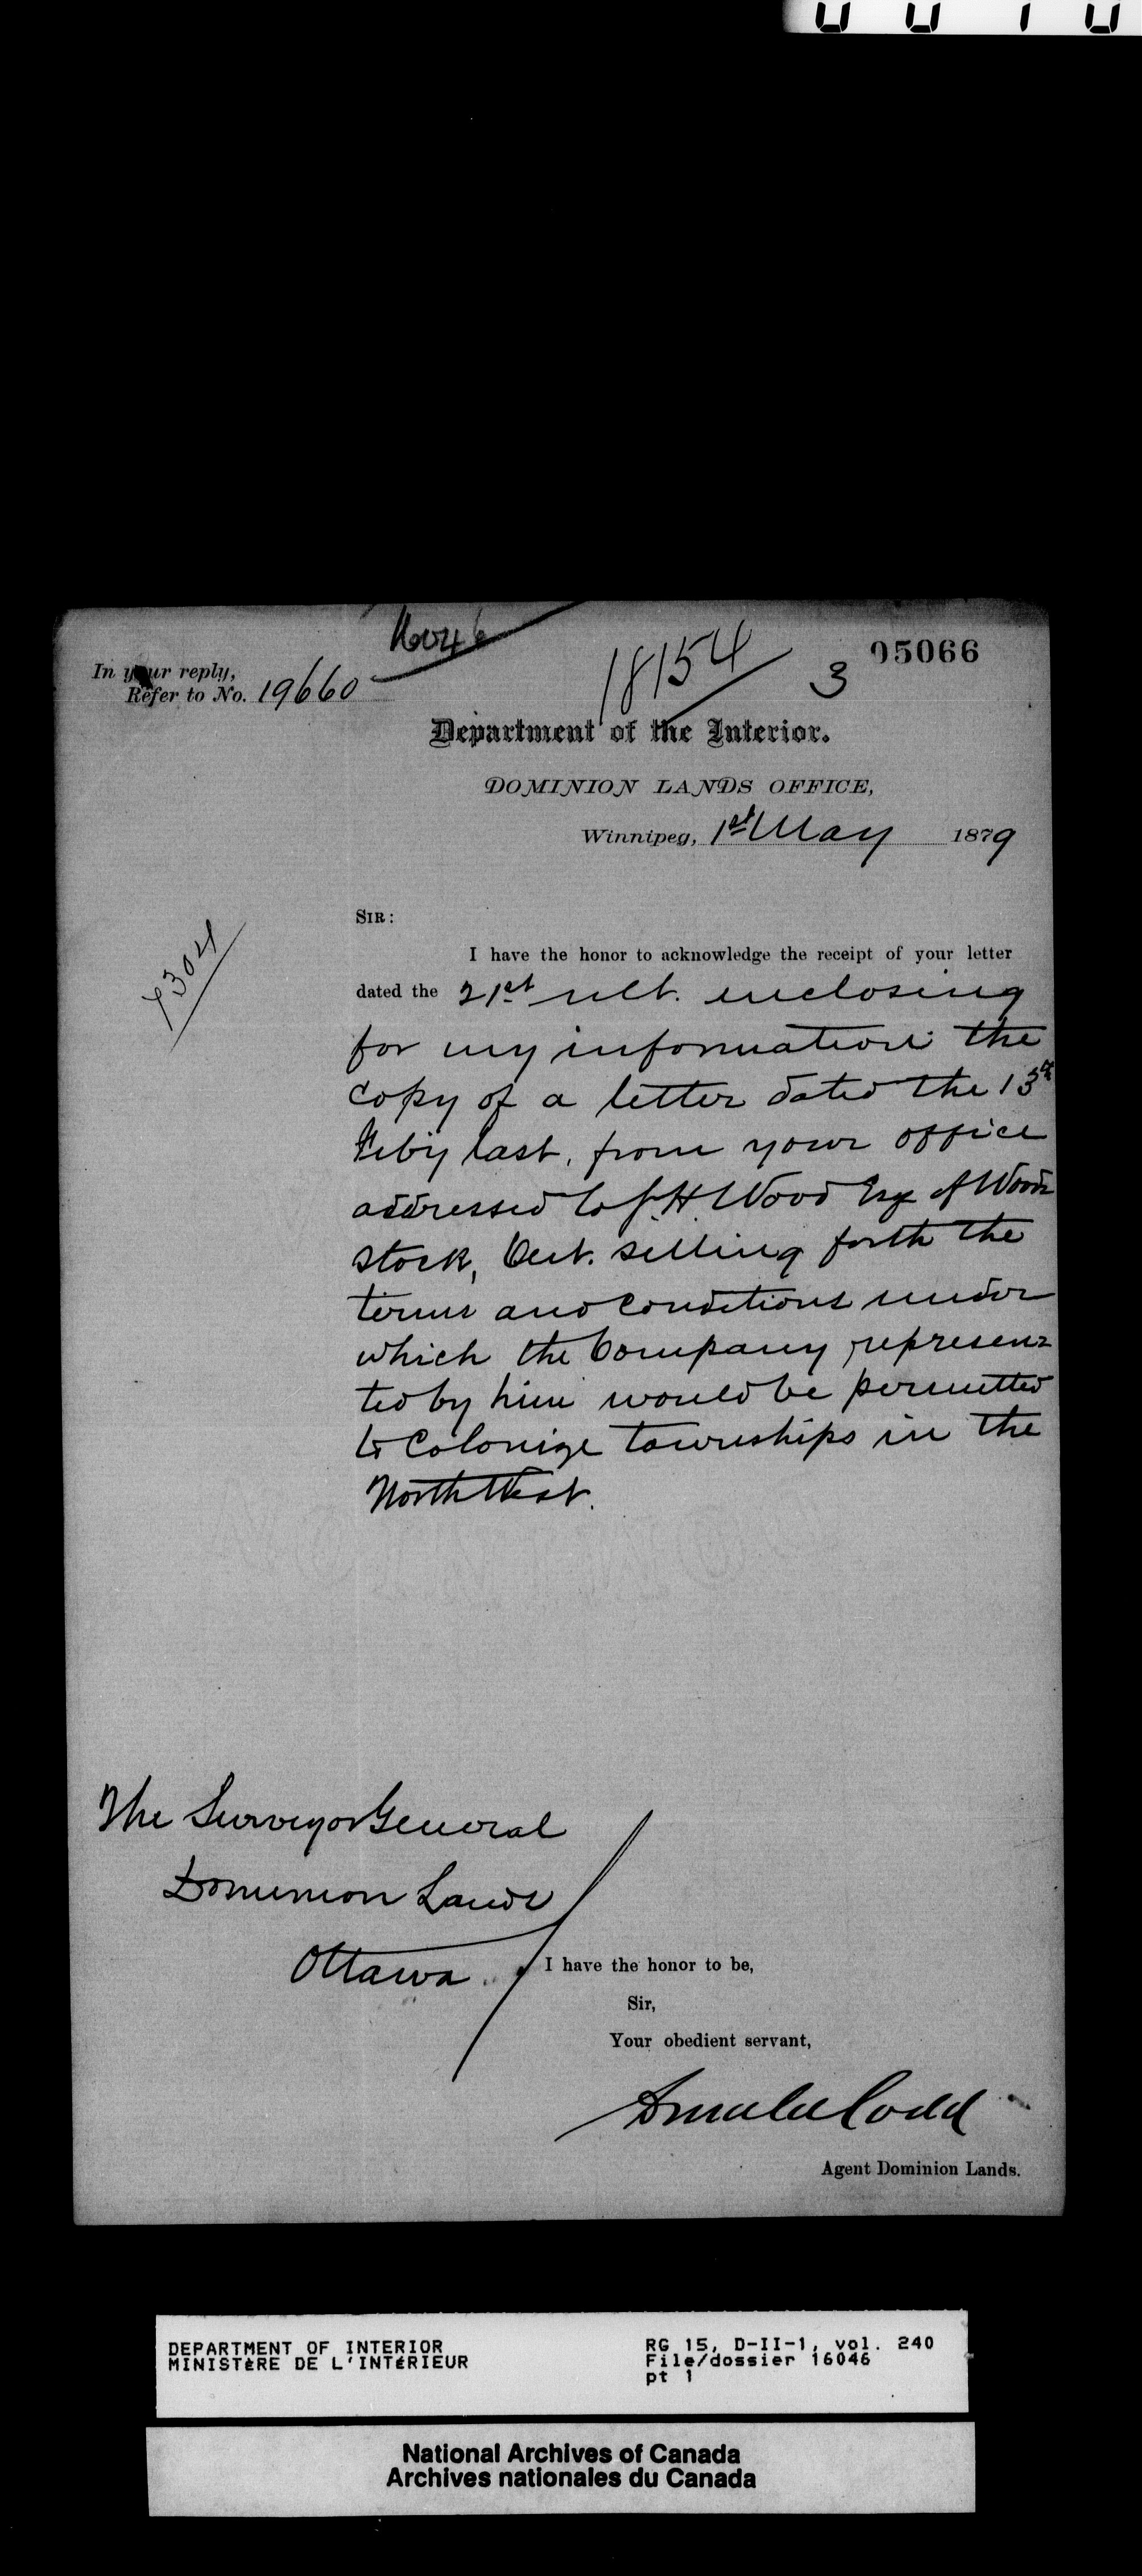 0010
16046
18154
3
05066
In your reply,
Refer to No. 19660
Department of the Interior.
DOMINION LANDS OFFICE,
Winnipeg, 1st May 1879
7304
SIR:
I have the honor to acknowledge the receipt of your letter
dated the 21st ult. enclosing
for my information the
copy of a letter dated the 13th
Feby last, from your office
addressed to J H Wood Esq of Wood
stock, Ont. setting forth the
terms and conditions under
which the Company represen
ted by him would be permitted
to Colonize townships in the
North West.
The Surveyor General
Dominion Lands
Ottawa.
I have the honor to be,
Sir,
Your obedient servant,
Codd
Agent Dominion Lands.
DEPARTMENT OF INTERIOR
MINISTÈRE DE L'INTÉRIEUR
RG 15, D-II-1, vol. 240
File/dossier 16046
pt 1
National Archives of Canada
Archives nationales du Canada